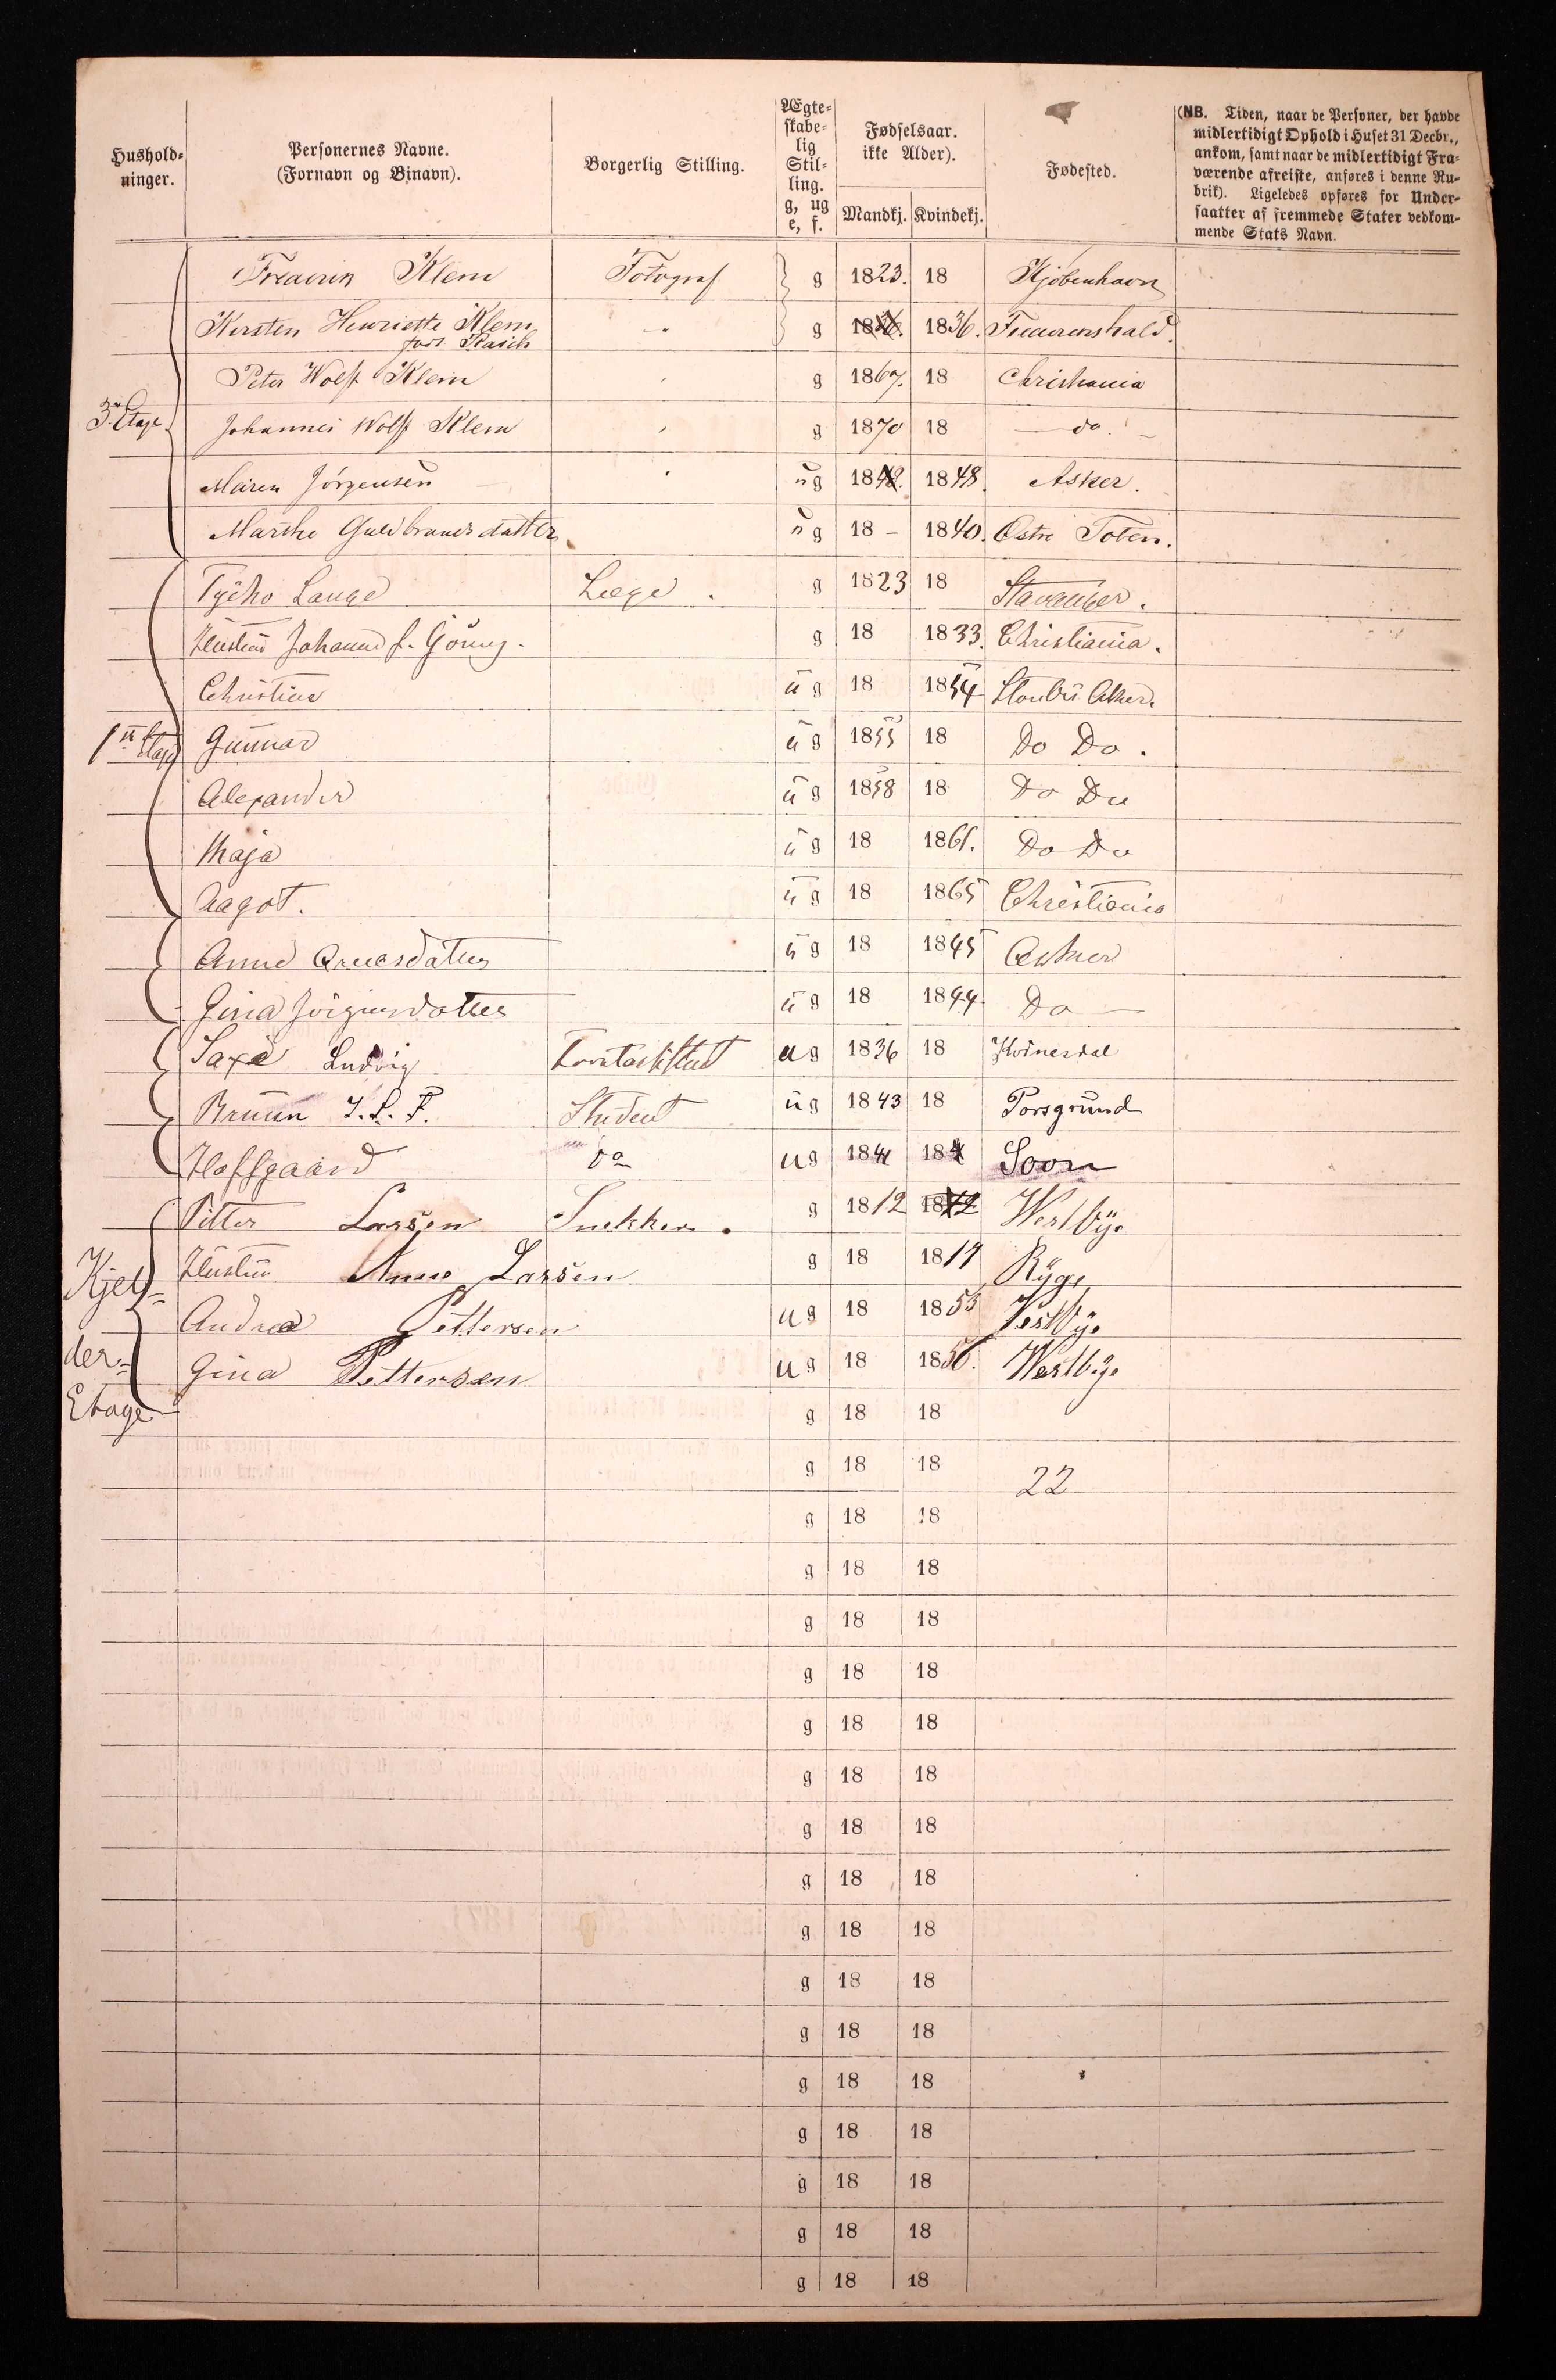 Hushold-
ninger.
Personernes Navne.
(Fornavn og Binavn).
Borgerlig Stilling.
Ægte-
skabe-
lig
Stil-
ling.
g, ug
e, f.
Fødselsaar.
ikke Alder).
Mandkj. Kvindekj.
Fødested.
(NB. Tiden, naar de Personer, der havde
midlertidigt Ophold i Huset 31 Decbr.,
ankom, samt naar de midlertidigt Fra-
værende afreiste, anføres i denne Ru-
brik). Ligeledes opføres for Under-
saatter af fremmede Stater vedkom-
mende Stats Navn.
Frederik Klem Fotograf g 1823. 18 Kjøbenhavn
Kirsten Henriette Klem g 1836. 1836. Frederikshald.
født Rasch
Peter Wolff Klem g 1867. 18 Christiania
3die Etage Johannes Wolff Klem g 1870 18 do.
Maren Jörgensen ug 1848. 1848. Asker.
Marthe Guldbrandsdatter ug 18 - 1840. Østre Toten.
Tycho Lange Læge. g 1823 18 Stavanger.
Hustru Johanne f. g 18 1833. Christiania.
Christine ug 18 1854 Aker.
1ste Etage Gunnar ug 1855 18 Do Do.
Alexander ug 1858 18 Do Do
Maja ug 18 1861. Do Do
Aagot. ug 18 1865 Christiania
Anne ug 18 1845 Asker
Gina Jörgensdatter ug 18 1844 Do
Saxe Ludvig ug 1836 18 Kvinesdal
Bruun J. L. F. Student ug 1843 18 Porsgrund
Hoffgaard do ug 184 184 Soon
Petter Larsen Snekker. g 1812 1812 Westbÿe
Kjel- Hustru Anne Larsen g 18 1819 Rÿge
Andrea Pettersen ug 18 1853 Vestbÿe
der- Gina Pettersen ug 18 1856. Westbye
Etage g 18 18
g 18 18 22
g 18 18
g 18 18
g 18 18
g 18 18
g 18 18
g 18 18
g 18 18
g 18 18
g 18 18
g 18 18
g 18 18
g 18 18
g 18 18
g 18 18
g 18 18
g 18 18